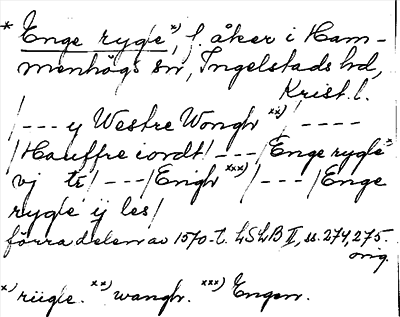 * Enge rygle x), f. åker i Ham-
menhögs sn, Ingelstads hd,
Krist. l.
/--- y Westre Wongh xx)/ ----
/Hauffre iordt/ ---/Enge rygle
vj tr/ ---/Enigh xxx)/ ---/Enge
rygle ij les/
förra delen av 1570-t. LSLB II, ss. 274, 275.
orig.
x) riigle. xx) wangh. xxx) Engen.